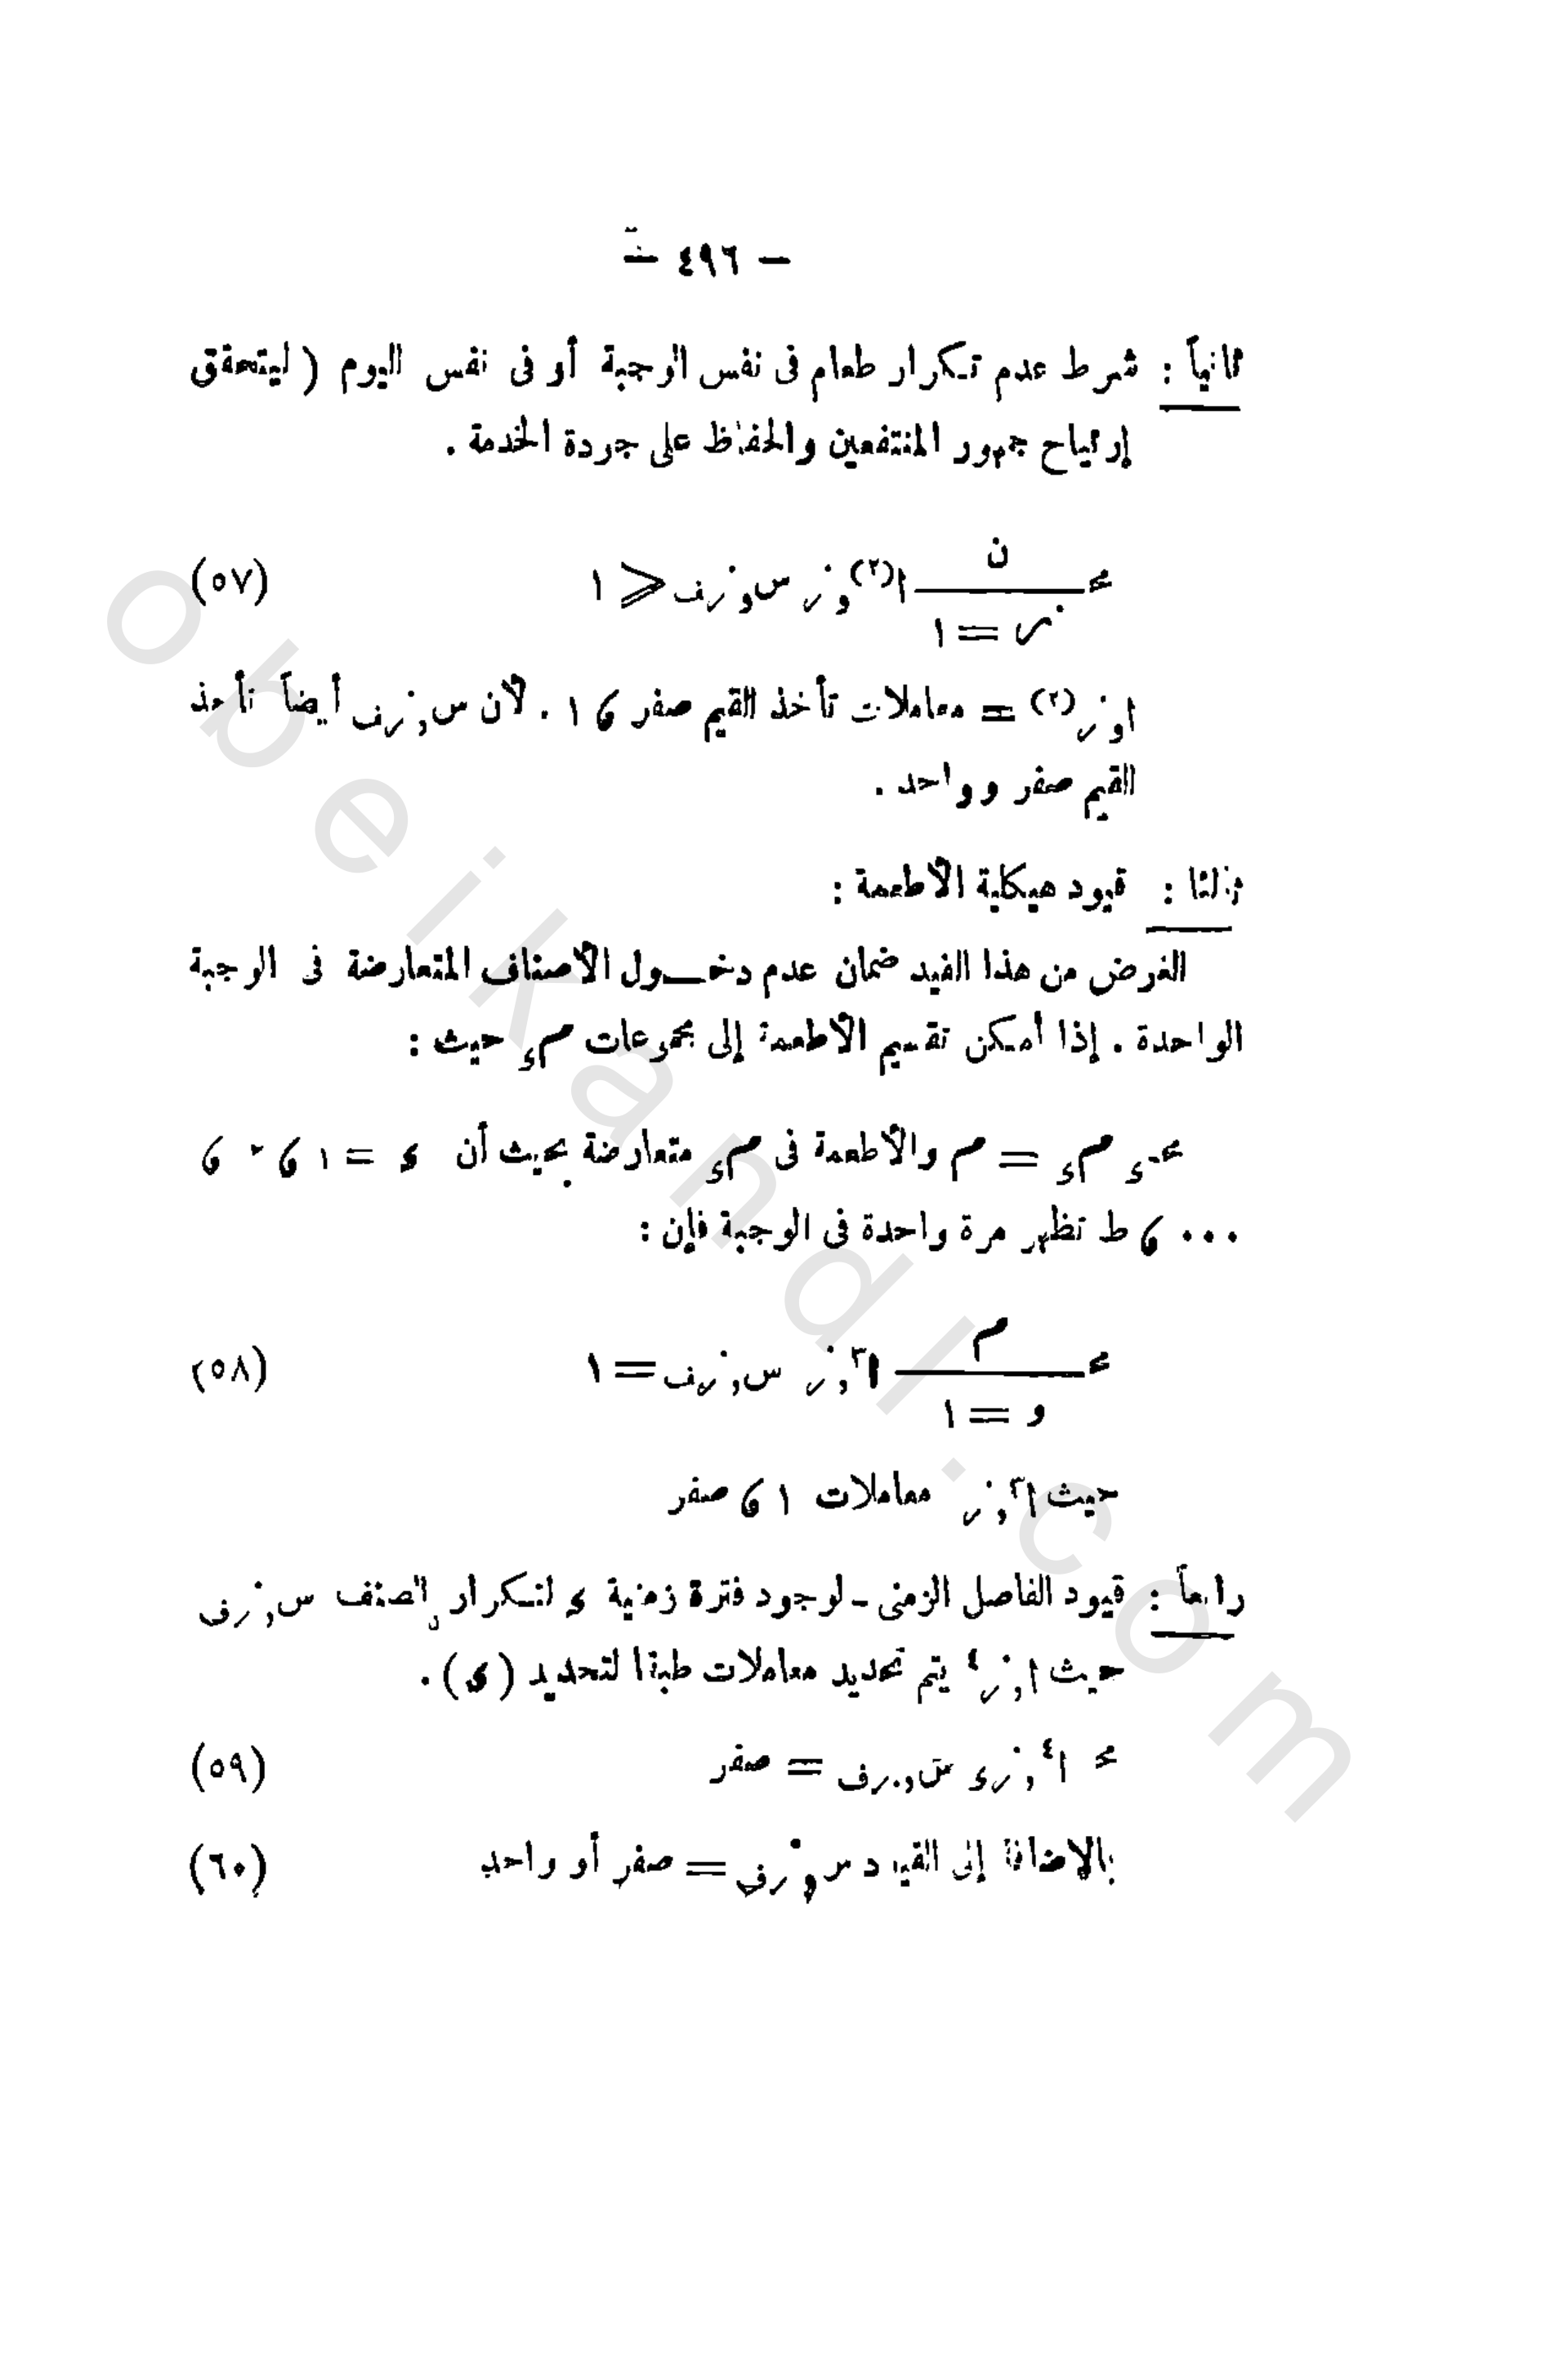 — ٤٩٦ —
ثانياً : شرط عدم تكرار طعام فى نفس الوجبة أو فى نفس اليوم ( ليتحقق
إرتياح جمهور المنتفعين والحفاظ على جودة الخدمة .
ن
محـ ـــــــ ا(٢)و ز س و ز ف ⩽ ١ (٥٧)
ز = ١
ا و ز(٢) = معاملات تأخذ القيم صفر ، ١ . لأن س و ز ف أيضاً تأخذ
القيم صفر وواحد .
ثالثا : قيود هيكلية الأطعمة :
الغرض من هذا القيد ضمان عدم دخـــول الأصناف المتعارضة فى الوجبة
الواحدة . إذا أمكن تقسيم الأطعمة إلى مجموعات مء حيث :
محـء مء = م والأطعمة فى مء متعارضة بحيث أن ء = ١ ، ٢ ،
... ، ط تظهر مرة واحدة فى الوجبة فإن :
م
محـ ـــــــ ا٣ و ز س و ز ف = ١ (٥٨)
و = ١
حيث ا٣ و ز معاملات ١ ، صفر
رابعاً : قيود الفاصل الزمنى - لوجود فترة زمنية ء لتكرار الصنف س و ز ف
حيث ا و ز٤ يتم تحديد معاملات طبقا لتحديد ( ى ) .
محـ ا٤ و ز ء س و ز ف = صفر (٥٩)
بالإضافة إلى القيود س و ز ف = صفر أو واحد (٦٠)
obeikandl.com